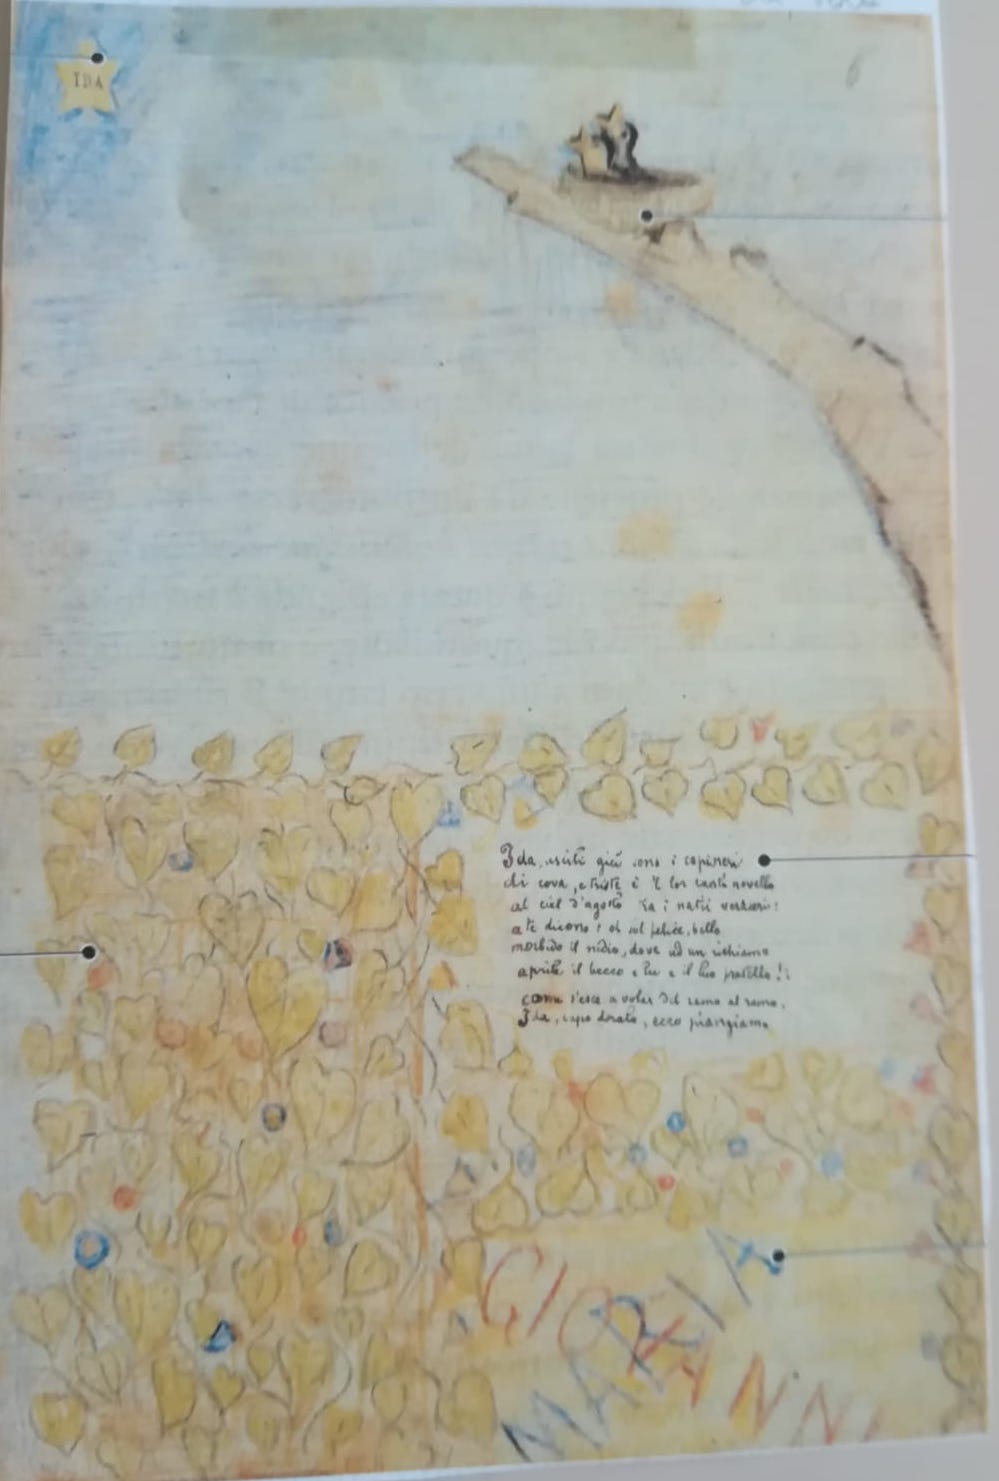 IDA
6
Ida, usciti già sono i capineri
di cova, e triste è 'l lor canto novello
al ciel d'agosto tra i natii verzieri:
a te dicono: oh sol felice, bello
morbido il nidio, dove ad un richiamo
aprite il becco e tu e il tuo fratello!
come s'esce a volar di ramo al ramo,
Ida, capo dorato, ecco piangiamo
GIOVANNI
MARIA